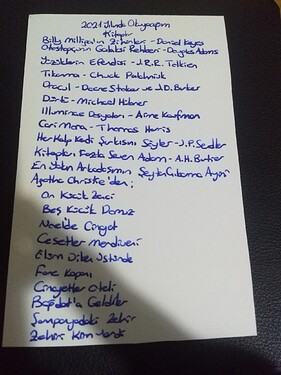 2021 Yılında Okuyacağım
Kitaplar
Billy Milligan'ın Zihinleri - Daniel Keyes
Otostopçunun Galaksi Rehberi - Douglas Adams
Yüzüklerin Efendisi - J.R.R. Tolkien
Tıkanma - Chuck Palahniuk
Dracul - Dacre Stoker ve J.D. Barker
Dörtlü - Michael Hübner
Illuminae Dosyaları - Amie Kaufman
Cari Mora - Thomas Harris
Her Kalp Kendi Şarkısını Söyler - J.P. Sendker
Kitapları Fazla Seven Adam - A.H. Bartlett
En Yakın Arkadaşımın Şeytan Çıkarma Ayini
Agatha Christie'den;
On Küçük Zenci
Beş Küçük Domuz
Noel'de Cinayet
Cesetler Merdiveni
Ölüm Diken Üstünde
Fare Kapanı
Cinayetler Oteli
Bağdat'a Geldiler
Şampanyadaki Zehir
Zehiri Kim